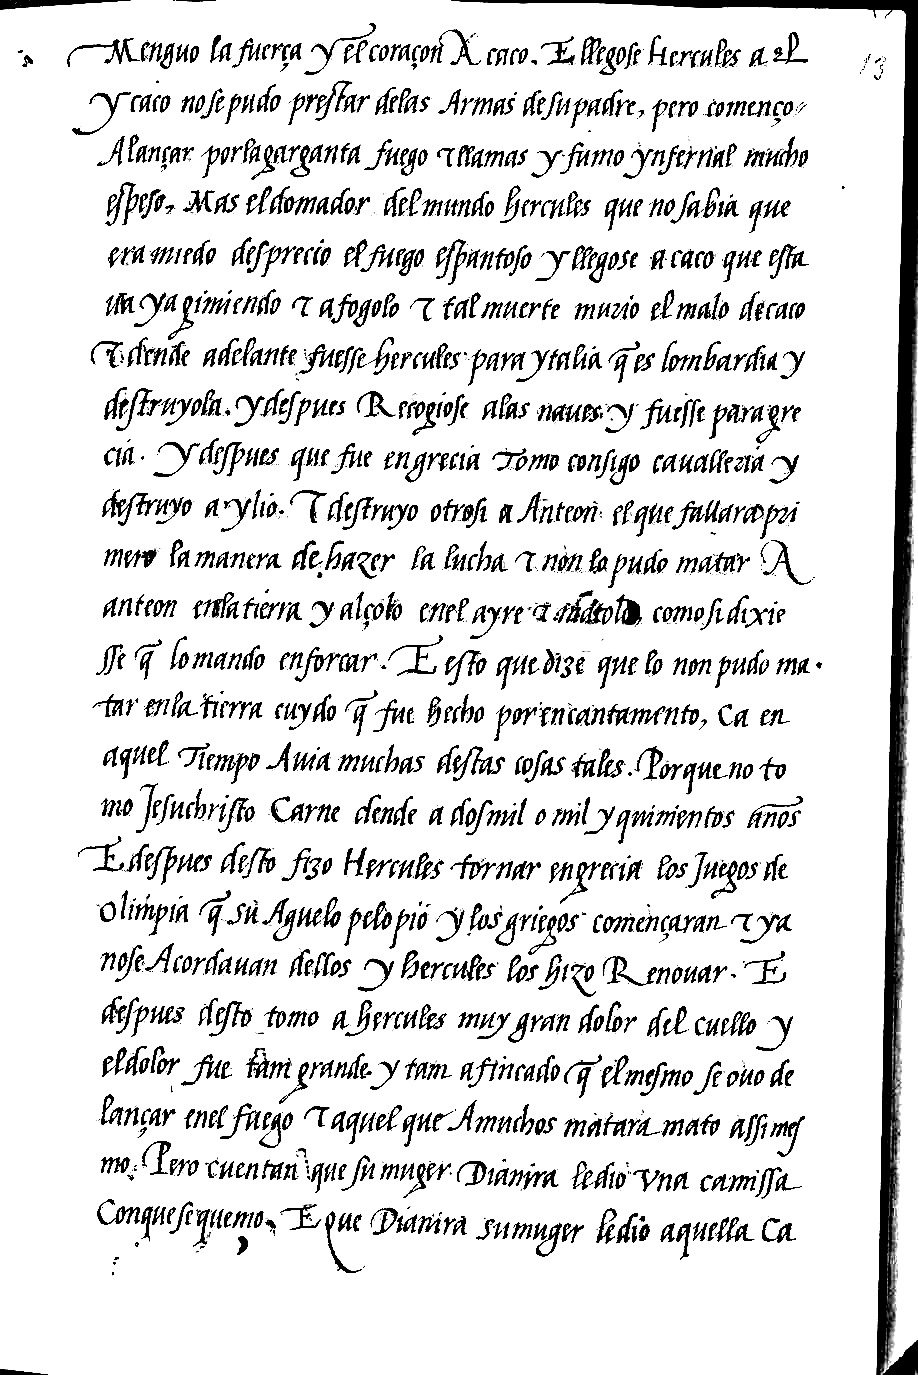 13
Menguo la fuerça y el coraçon A caco. E llegose Hercules a el
y caco nose pudo prestar delas Armas de su padre, pero començo
A lançar por la garganta fuego ⁊ llamas y fumo ynfernal mucho
espeso, Mas el domador del mundo hercules que no sabia que
era miedo desprecio el fuego espantoso y llegose a caco que esta
ua ya gimiendo ⁊ afogolo ⁊ tal muerte murio el malo de caco
⁊ dende adelante fuesse hercules para ytalia q̃ es lombardia y
destruyola. y despues Recogiose alas naues y fuesse para gre
cia. y despues que fue en grecia Tomo consigo caualleria y
destruyo a ylio. ⁊ destruyo otrosi a Anteon el que fallara pri
mero la manera de hazer la lucha ⁊ non lo pudo matar A
anteon enla tierra y alçolo enel ayre ⁊ como si dixie
sse q̃ lo mando enforcar. E esto que dize que lo non pudo ma
tar enla tierra cuydo q̃ fue hecho por encantamento, Ca en
aquel Tiempo Auia muchas destas cosas tales. Porque no to
mo Jesuchristo Carne dende a dos mil o mil y quinientos años
E despues desto fizo Hercules tornar en grecia los Juegos de
Olimpia q̃ su Aguelo pelopio y los griegos començaran ⁊ ya
nose Acordauan dellos y hercules los hizo Renouar. E
despues desto tomo a hercules muy gran dolor del cuello y
el dolor fue tam grande y tam afincado q̃ el mesmo se ouo de
lançar enel fuego ⁊ aquel que A muchos matara mato assi mes
mo. Pero cuentan que su muger Dianira le dio vna camissa
Con que se quemo, E que Dianira su muger le dio aquella Ca